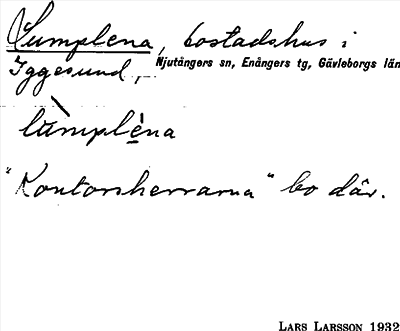 Lumplena, bostadshus i
Iggesund, Njutångers sn, Enångers tg, Gävleborgs län
lùmplèna
"Kontorsherrarna" bo där.
LARS LARSSON 1932